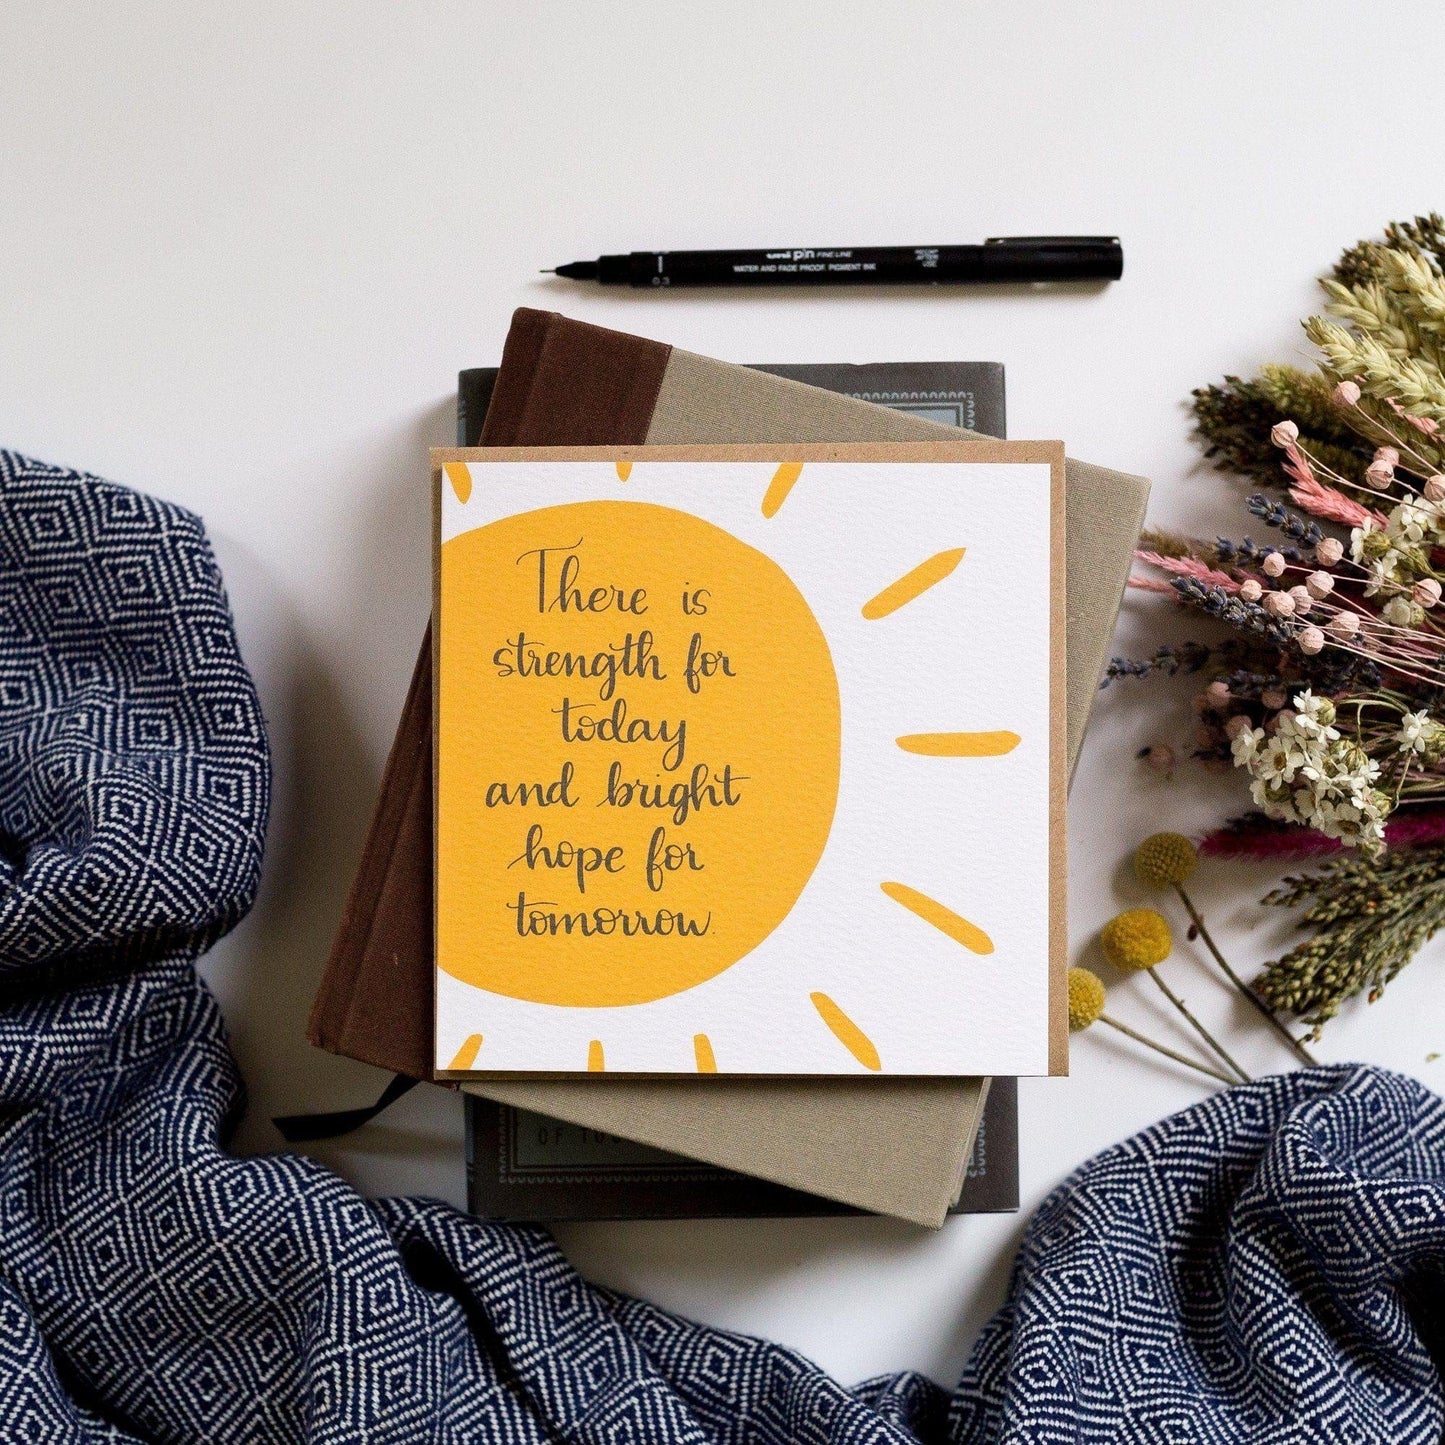 uni pin FINE LINE
WATER AND FADE PROOF, PIGMENT INK
0.3
There is
strength for
today
and bright
hope for
tomorrow.
OF